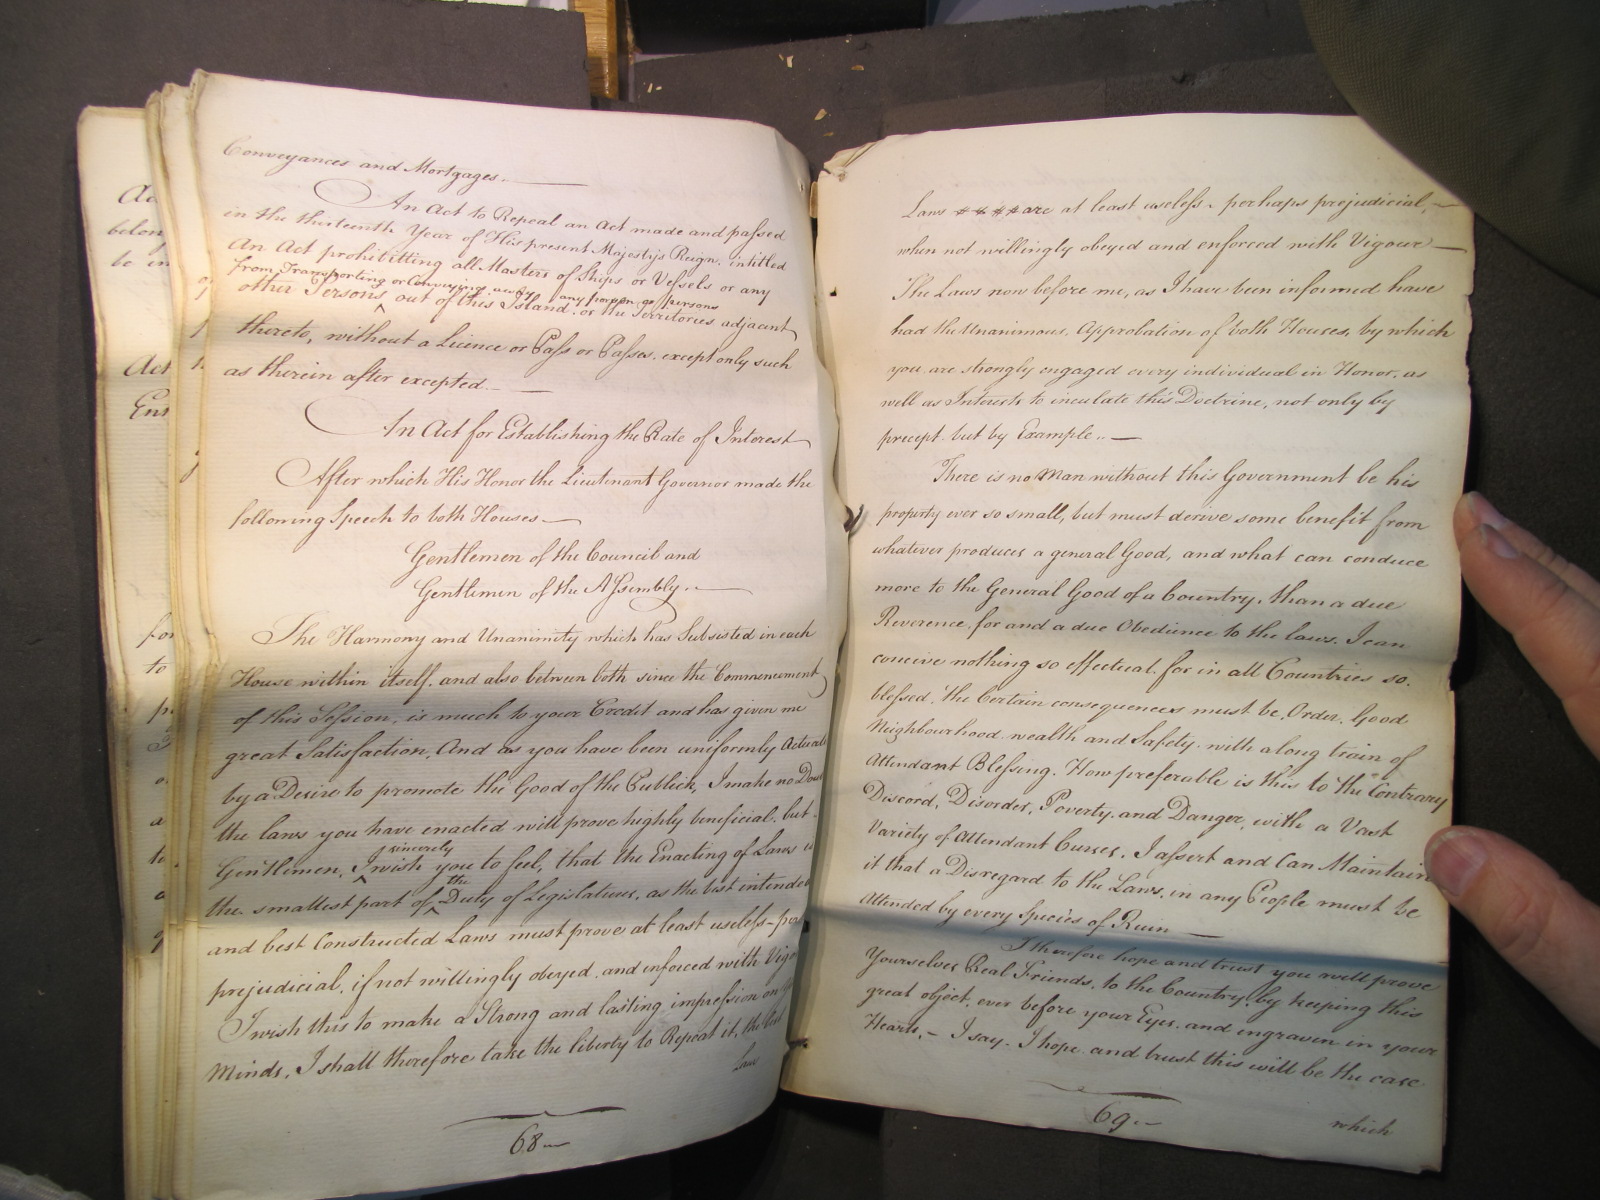 Conveyances and Mortgages.
An Act to Repeal an Act made and passed
in the thirteenth Year of His present Majesty's Reign. intitled
An Act prohibitting all Masters of Ships or Vessels or any
from Transporting or Conveying away any person or persons
other Persons, out of this Island. or the Territories adjacent
thereto, without a Licence or Pass or Passes. except only such
as therein after excepted.
An Act for Establishing the Rate of Interest
After which His Honor the Lieutenant Governor made the
following Speech to both Houses
Gentlemen of the Council and
Gentlemen of the Assembly.
The Harmony and Unanimity which has Subsisted in each
House within itself. and also between both since the Commencement
of this Session, is much to your Credit and has given me
great Satisfaction. And as you have been uniformly
by a Desire to promote the Good of the Publick, I make no
the laws you have enacted will prove highly beneficial. but
sincerely
Gentlemen, I wish you to feel, that the Enacting of Laws is
the
the smallest part of Duty of Legislature, as the best intended
and best Constructed Laws must prove at least useless-
prejudicial, if not willingly obeyed. and enforced with
I wish this to make a Strong and lasting impression on
Minds, I shall therefore take the liberty to Repeat it, the best
Laws
68
Laws are at least useless. perhaps prejudicial,
when not willingly obeyed and enforced with Vigour
The Laws now before me, as I have been informed have
had the Unanimous, Approbation of both Houses, by which
you are strongly engaged every individual in Honor. as
well as Interest to inculate this Doctrine, not only by
precept. but by Example.
There is no Man without this Government be his
property ever so small, but must derive some benefit from
whatever produces a general Good, and what can conduce
more to the General Good of a Country. than a due
Reverence, for and a due Obedience to the laws. I can
conceive nothing so effectual. for in all Countries so.
blessed. the Certain consequences must be, Order. Good
Neighbourhood. wealth and Safety. with along train of
Attendant Blessing. How preferable is this to the Contrary
Discord, Disorder, Poverty. and Danger, with a Vast
Variety of Attendant Curses. I assert and Can Maintain
it that a Disregard to the Laws. in any People must be
Attended by every Species of Ruin
I therefore hope and trust you will prove
Yourselves Real Friends. to the Country, by keeping this
great object. ever before your Eyes. and engraven in your
Hearts,- I say- I hope and trust this will be the case
69
which